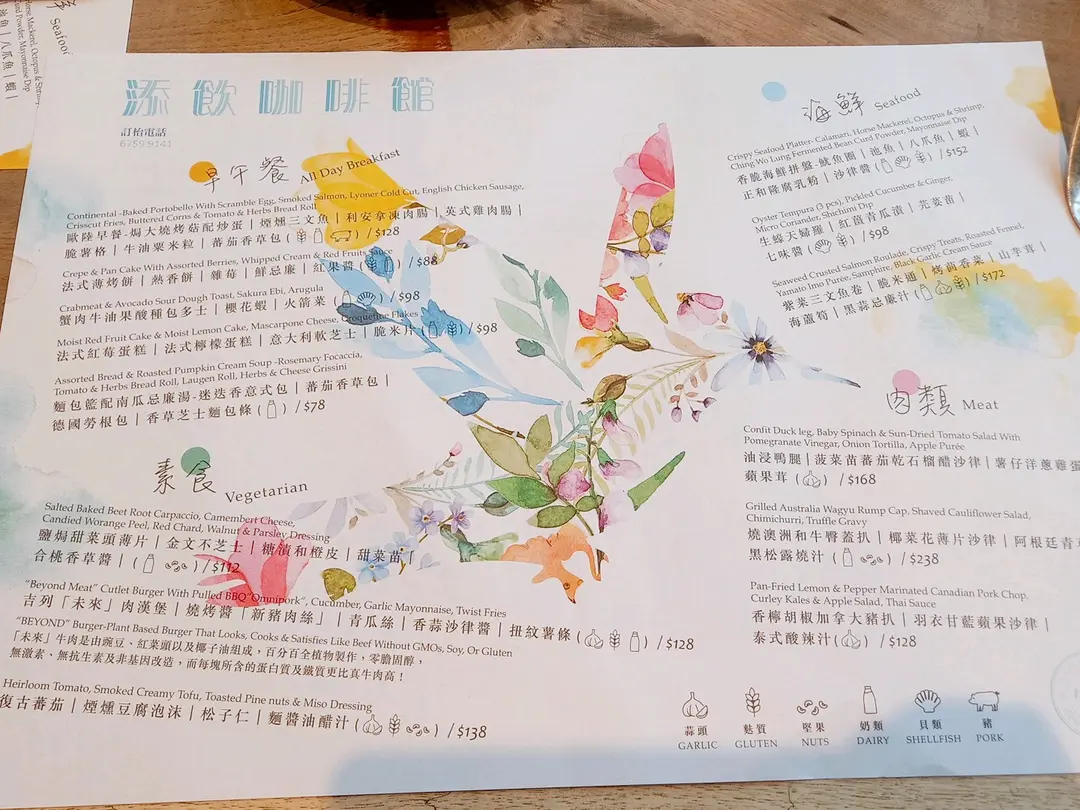 添飲咖啡館
訂枱電話
6259 9141
早午餐 All Day Breakfast
Continental -Baked Portobello With Scramble Egg, Smoked Salmon, Lyoner Cold Cut, English Chicken Sausage,
Crisscut Fries, Buttered Corns & Tomato & Herbs Bread Roll
歐陸早餐-焗大燒烤菇配炒蛋 | 煙燻三文魚 | 利安拿凍肉腸 | 英式雞肉腸 |
脆薯格 | 牛油粟米粒 | 蕃茄香草包 ( ) / $128
Crepe & Pan Cake With Assorted Berries, Whipped Cream & Red Fruits Sauce
法式薄烤餅 | 熱香餅 | 雜莓 | 鮮忌廉 | 紅果醬 ( ) / $88
Crabmeat & Avocado Sour Dough Toast, Sakura Ebi, Arugula
蟹肉牛油果酸種包多士 | 櫻花蝦 | 火箭菜 ( ) / $98
Moist Red Fruit Cake & Moist Lemon Cake, Mascarpone Cheese, Croquetine Flakes
法式紅莓蛋糕 | 法式檸檬蛋糕 | 意大利軟芝士 | 脆米片 ( ) / $98
Assorted Bread & Roasted Pumpkin Cream Soup -Rosemary Focaccia,
Tomato & Herbs Bread Roll, Laugen Roll, Herbs & Cheese Grissini
麵包籃配南瓜忌廉湯-迷迭香意式包 | 蕃茄香草包 |
德國勞根包 | 香草芝士麵包條 ( ) / $78
素食 Vegetarian
Salted Baked Beet Root Carpaccio, Camembert Cheese,
Candied Worange Peel, Red Chard, Walnut & Parsley Dressing
鹽焗甜菜頭薄片 | 金文不芝士 | 糖漬和橙皮 | 甜菜苗 |
合桃香草醬 ( ) / $112
"Beyond Meat" Cutlet Burger With Pulled BBQ"Omnipork", Cucumber, Garlic Mayonnaise, Twist Fries
吉列「未來」肉漢堡 | 燒烤醬「新豬肉絲」 | 青瓜絲 | 香蒜沙律醬 | 扭紋薯條 ( ) / $128
"BEYOND" Burger-Plant Based Burger That Looks, Cooks & Satisfies Like Beef Without GMOs, Soy, Or Gluten
「未來」牛肉是由豌豆、紅菜頭以及椰子油組成，百分百全植物製作，零膽固醇，
無激素、無抗生素及非基因改造，而每塊所含的蛋白質及鐵質更比真牛肉高！
Heirloom Tomato, Smoked Creamy Tofu, Toasted Pine nuts & Miso Dressing
復古蕃茄 | 煙燻豆腐泡沫 | 松子仁 | 麵醬油醋汁 ( ) / $138
海鮮 Seafood
Crispy Seafood Platter- Calamari, Horse Mackerel, Octopus & Shrimp,
Ching Wo Lung Fermented Bean Curd Powder, Mayonnaise Dip
香脆海鮮拼盤-魷魚圈 | 池魚 | 八爪魚 | 蝦 |
正和隆腐乳粉 | 沙律醬 ( ) / $152
Oyster Tempura (3 pcs), Pickled Cucumber & Ginger,
Micro Coriander, Shichimi Dip
生蠔天婦羅 | 紅薑青瓜漬 | 芫荽苗 |
七味醬 ( ) / $98
Seaweed Crusted Salmon Roulade, Crispy Treats, Roasted Fennel,
Yamato Imo Purée, Samphire, Black Garlic Cream Sauce
紫菜三文魚卷 | 脆米通 | 烤茴香菜 | 山芋茸 |
海蘆筍 | 黑蒜忌廉汁 ( ) / $172
肉類 Meat
Confit Duck leg, Baby Spinach & Sun-Dried Tomato Salad With
Pomegranate Vinegar, Onion Tortilla, Apple Purée
油浸鴨腿 | 菠菜苗蕃茄乾石榴醋沙律 | 薯仔洋蔥雞蛋
蘋果茸 ( ) / $168
Grilled Australia Wagyu Rump Cap, Shaved Cauliflower Salad,
Chimichurri, Truffle Gravy
燒澳洲和牛臀蓋扒 | 椰菜花薄片沙律 | 阿根廷青
黑松露燒汁 ( ) / $238
Pan-Fried Lemon & Pepper Marinated Canadian Pork Chop,
Curley Kales & Apple Salad, Thai Sauce
香檸胡椒加拿大豬扒 | 羽衣甘藍蘋果沙律 |
泰式酸辣汁 ( ) / $128
蒜頭 麩質 堅果 奶類 貝類 豬
GARLIC GLUTEN NUTS DAIRY SHELLFISH PORK
Seafood
Horse Mackerel, Octopus & Shrimp,
Curd Powder, Mayonnaise Dip
池魚 | 八爪魚 | 蝦 |